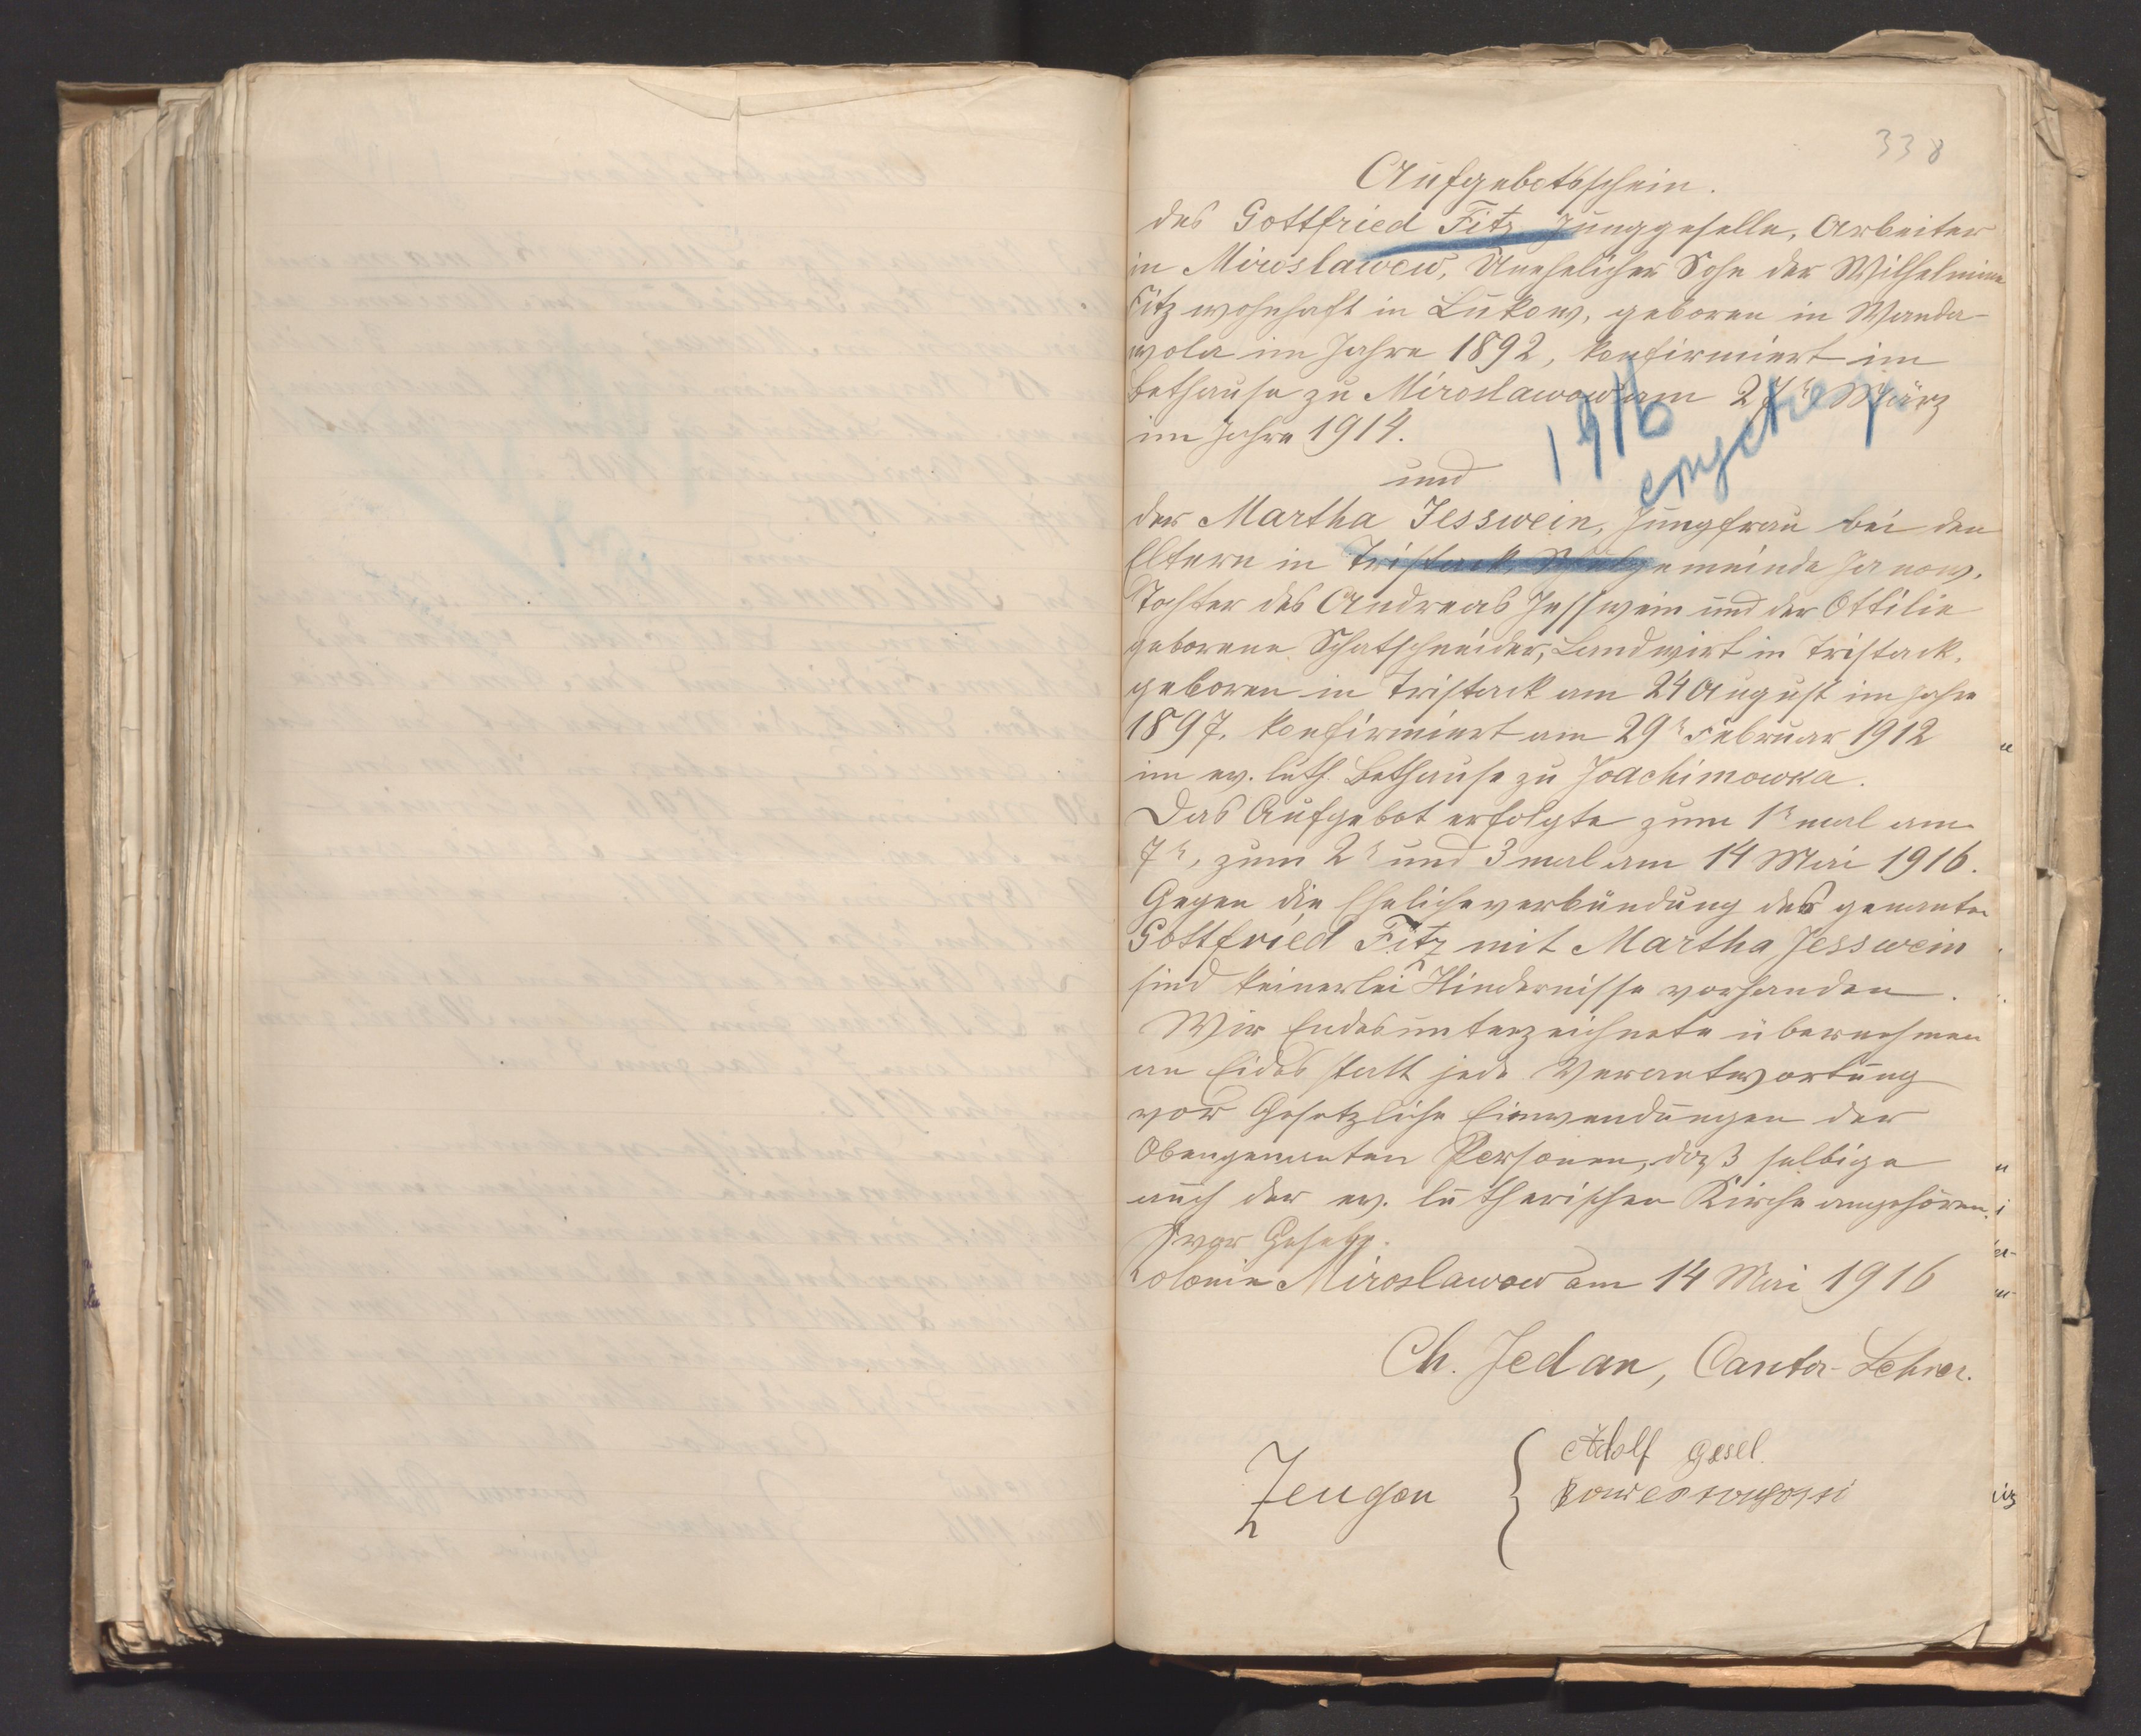 338
Aufgebotsschein.
des Gottfried Fitz Junggeselle, Arbeiter
in Miroslawow, Unehelicher Sohn der Wilhelmine
Fitz wohnhaft in Lukow, geboren in Wanda-
wola im Jahre 1892, konfirmiert im
Bethause zu Miroslawow am 27n März
im Jahre 1914.
1916
und
der Martha Jesswein, Jungfrau bei den
Eltern in Tristack, Schulgemeinde Janow.
Tochter des Andreas Jesswein und der Ottilie
geborene Schatschneider, Landwirt in Tristack.
geboren in Tristack am 24 August im Jahre
1897. konfirmiert am 29n Februar 1912
im ev. luth. Bethause zu Joachimowka.
Das Aufgebot erfolgte zum 1n mal am
7n, zum 2n und 3 mal am 14 Mai 1916.
Gegen die Ehelicheverbündung des genanten
Gottfried Fitz mit Martha Jesswein
sind keinerlei Hindernisse vorhanden.
Wir Endesunterzeichnete übernehmen
an Eides statt jede Verantwortung
vor Gesetzliche Einwendungen der
Obengenanten Personen, daß selbige
auch der ev. lutherischen Kirche angehören.
vor Gesetz.
Kolonie Miroslawow am 14 Mai 1916
Ch. Jedan, Cantor-Lehrer.
Zeugen
Adolf Gesel